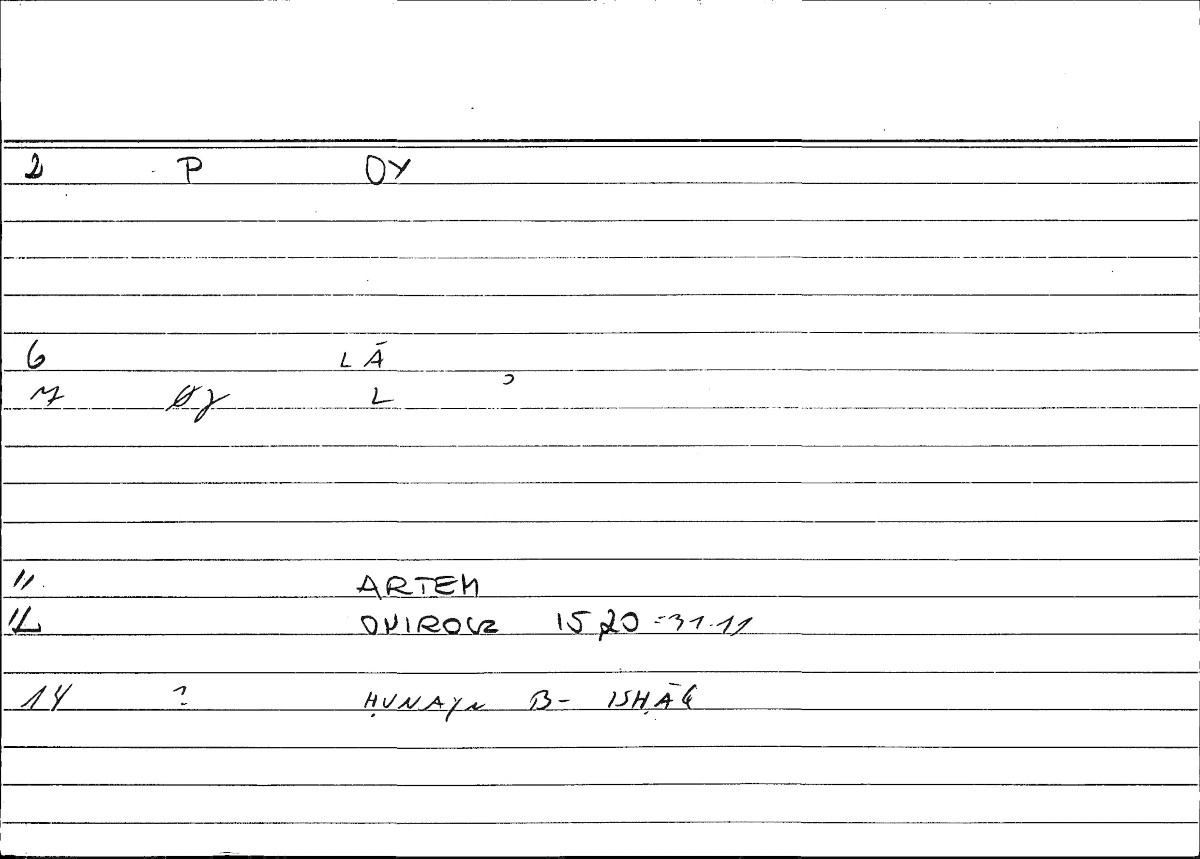 2 P OY
6 L Ā
7 L
11 ARTEM
12 ONIROCR 15,20 = 31.11
14 ? ḤUNAYN B- ISḤĀQ